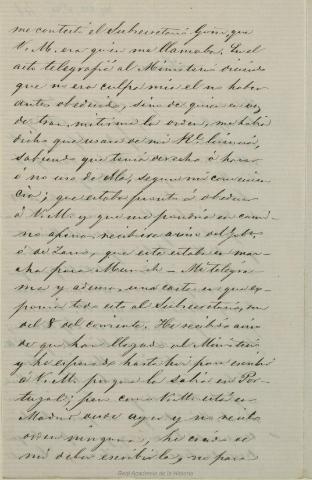 me contestó el Subsecretario Goñi, que
V. M. era quien me llamaba. En el
acto telegrafié al Ministerio diciendo
que no era culpa mia el no haber
antes obedecido, sino de quien en vez
de trasmitirme la orden, me había
dicho que usara de mi Rl. licencia,
sabiendo que tenia derecho á hacer
ó no uso de ella, segun mi convenien
cia; que estaba pronto á obedecer
á V. M. y que me pondria en cami
no apenas recibiera aviso del
ó de Zarco, que este estaba en mar
cha para Munich - Mi telegra
ma y ademas, una carta en que ex
ponia todo esto al Subsecretario, son
del 8 del corriente. He recibido avi
so de que han llegado al Ministerio
y he esperado hasta hoy para escribir
á V. M. porque la sabia en Por
tugal; pero como V. M. está en
Madrid desde ayer y no recibo
orden ninguna, he creido de
mi deber escribirla, no para
Real Academia de la Historia